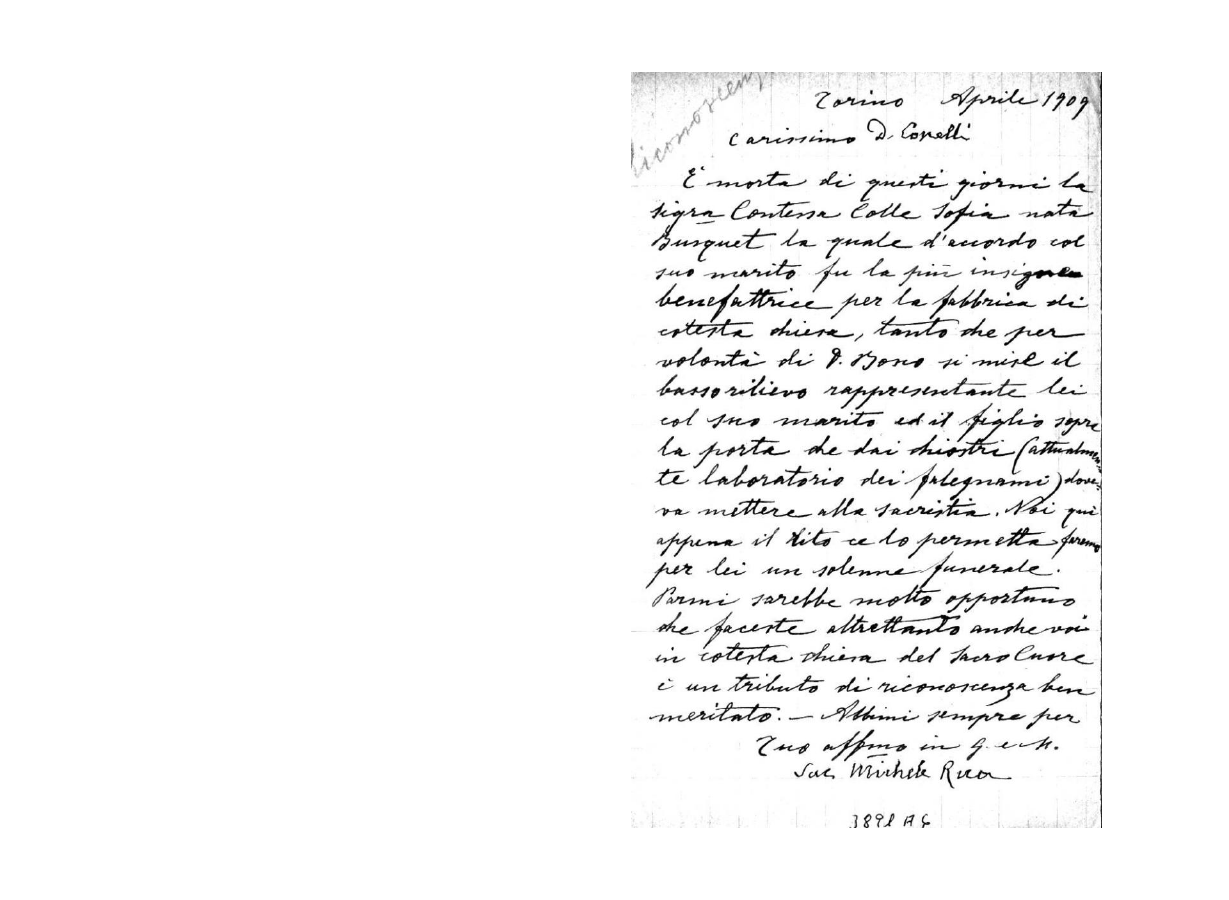 riconoscenz
Torino Aprile 1909
Carissimo D. Conelli
È morta di questi giorni la
sigra Contessa Colle Sofia nata
Busquet la quale d'accordo col
suo marito fu la più insigne
benefattrice per la fabbrica di
cotesta chiesa, tanto che per
volontà di D. Bosco si mise il
bassorilievo rappresentante lei
col suo marito ed il figlio sopra
la porta che dai chiostri (attualmen-
te laboratorio dei falegnami) dove-
va mettere alla sacristia. Noi qui
appena il rito ce lo permetta faremo
per lei un solenne funerale.
Parmi sarebbe molto opportuno
che faceste altrettanto anche voi
in cotesta chiesa del Sacro Cuore
è un tributo di riconoscenza ben
meritato. — Abbimi sempre per
Tuo affmo in G. e M.
Sac. Michele Rua